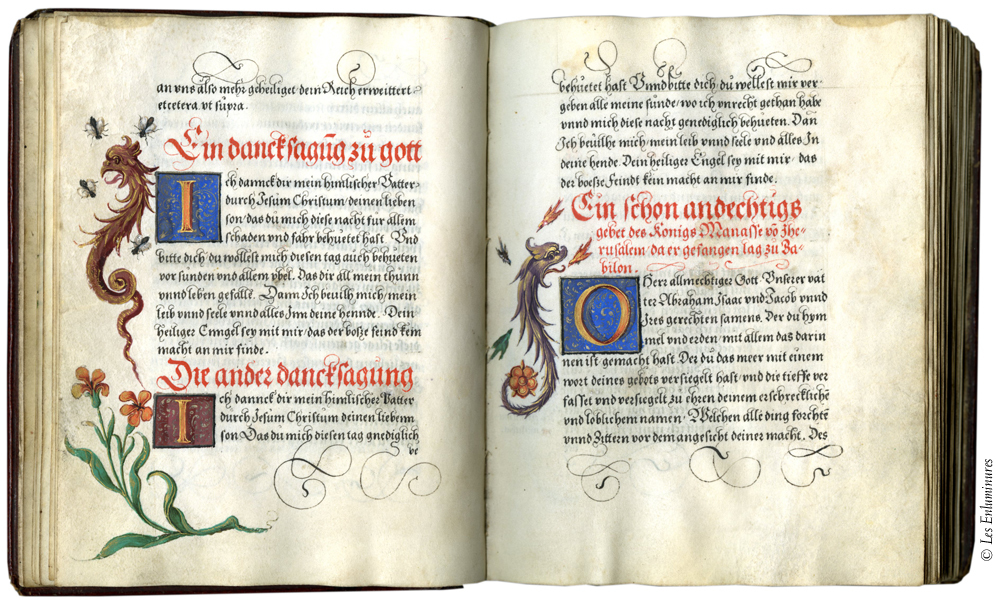 an vns also mehr geheiliget dein Reich erweittert
etcetera vt supra.
Ein dancksagūg zu gott
Ich dannck dir mein himlischer Vatter
durch Jesum Christum deinen lieben
son das du mich diese nacht fur allem
schaden vnd fahr behuetet hast. Vnd
bitte dich du wollest mich diesen tag auch behueten
vor sunden vnd allem ybel. Das dir all mein thunn
vnnd leben gefalle. Dann Ich beuilh mich mein
leib vnnd seele vnnd alles Inn deine hennde. Dein
heiliger Enngel sey mit mir das der boße feind kein
macht an mir finde.
Die ander dancksagung
Ich dannck dir mein himlischer Vatter
durch Jesum Christum deinen liebenn
son Das du mich diesen tag gnediglich
be
behuetet hast Vnnd bitte dich du wellest mir ver-
geben alle meine sunde wo ich vnrecht gethan habe
vnnd mich diese nacht genediglich behueten. Dan
Ich beuilhe mich mein leib vnnd seele vnd alles In
deine hende. Dein heiliger Engel sey mit mir das
der boeße Feindt kein macht an mir finde.
Ein schon andechtigs
gebet des Konigs Manasse vō Jhe-
rusalem da er gefangen lag zu Ba-
bilon.
O Herr allmechtiger Gott Vnserer vat
ter Abraham Isaac vnd Jacob vnnd
Ires gerechten samens. Der du hym
mel vnd erden mit allem das darin
nen ist gemacht hast. Der du das meer mit einem
wort deines gebots versiegelt hast vnd die tieffe ver
fasset vnd versiegelt zu ehren deinem erschrecklichē
vnd loblichem namen. Welchen alle ding forchtē
vnnd Zittern vor dem angesicht deiner macht. Des
© Les Enluminures